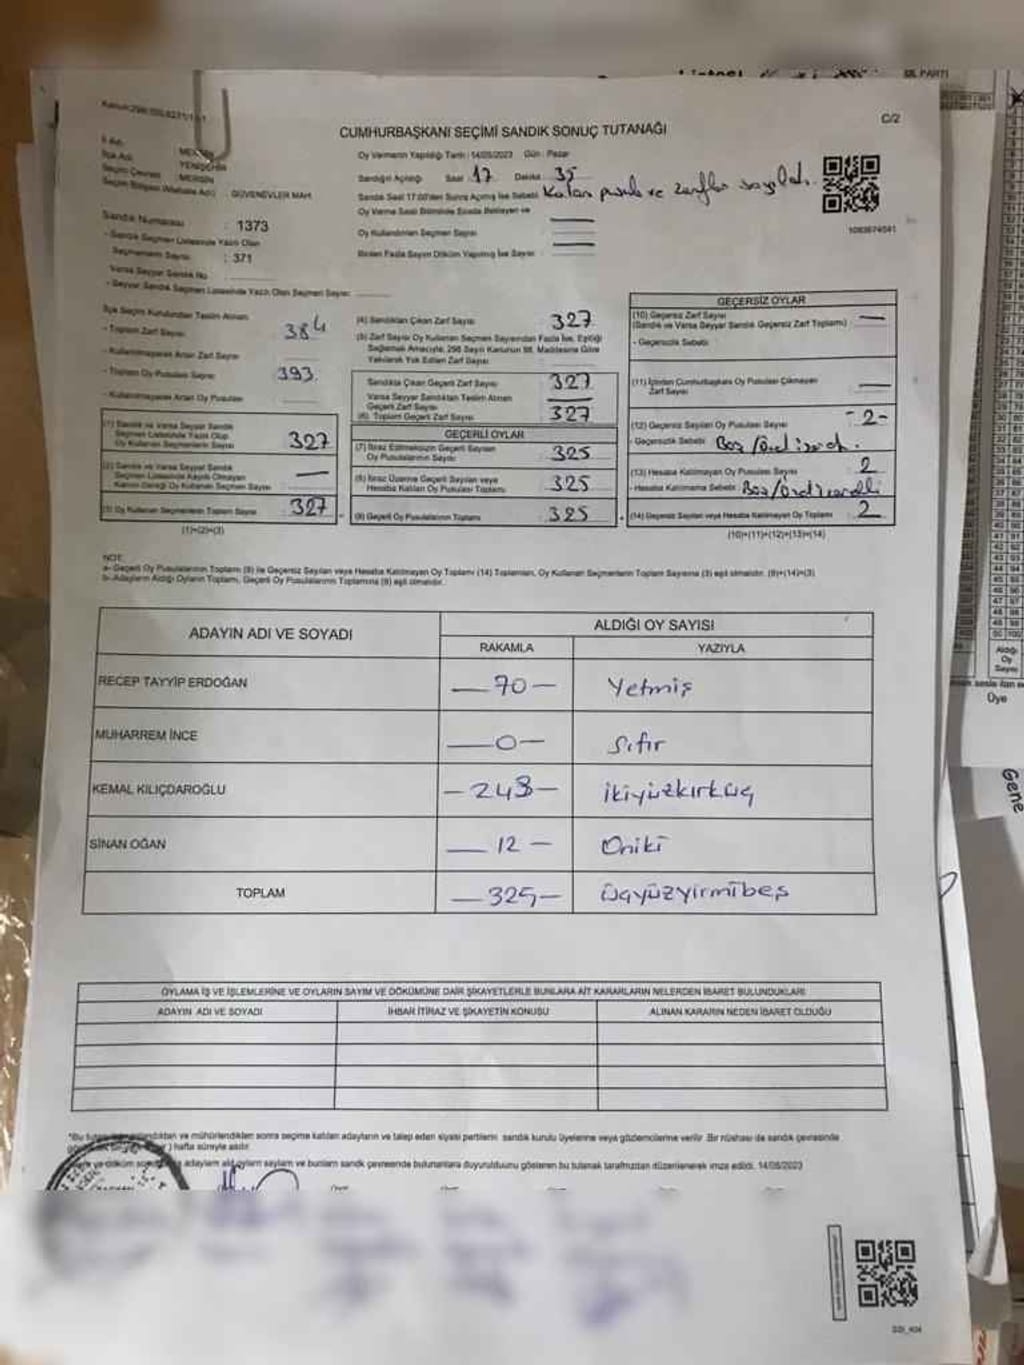 CUMHURBAŞKANI SEÇİMİ SANDIK SONUÇ TUTANAĞI
C/2
Oy Vermenin Yapıldığı Tarih : 14/05/2023 Gün : Pazar
Sandığın Açıldığı Saat 17 Dakika : 35
Sandık Saat 17:00'den Sonra Açılmış İse Sebebi: Kalan pusula ve zarflar sayıldı.
Oy Verme Saati Bitiminde Sırada Bekleyen ve
Oy Kullandırılan Seçmen Sayısı :
Birden Fazla Sayım Döküm Yapılmış İse Sayısı :
İli Adı
İlçe Adı : YENİŞEHİR
Seçim Çevresi : MERSİN
Seçim Bölgesi (Mahalle Adı) : GÜVENEVLER MAH.
Sandık Numarası : 1373
- Sandık Seçmen Listesinde Yazılı Olan
Seçmenlerin Sayısı : 371
Varsa Seyyar Sandık No
- Seyyar Sandık Seçmen Listesinde Yazılı Olan Seçmen Sayısı
İlçe Seçim Kurulundan Teslim Alınan
- Toplam Zarf Sayısı 384
- Kullanılmayarak Artan Zarf Sayısı
- Toplam Oy Pusulası Sayısı 393
- Kullanılmayarak Artan Oy Pusulası
(1) Sandık ve Varsa Seyyar Sandık
Seçmen Listesinde Yazılı Olup
Oy Kullanan Seçmenlerin Sayısı 327
(2) Sandık ve Varsa Seyyar Sandık
Seçmen Listesinde Kayıtlı Olmayan
Kanun Gereği Oy Kullanan Seçmen Sayısı —
(3) Oy Kullanan Seçmenlerin Toplam Sayısı 327
(1)+(2)=(3)
(4) Sandıktan Çıkan Zarf Sayısı 327
(5) Zarf Sayısı Oy Kullanan Seçmen Sayısından Fazla İse, Eşitliği
Sağlamak Amacıyla, 298 Sayılı Kanunun 98. Maddesine Göre
Yakılarak Yok Edilen Zarf Sayısı
Sandıkta Çıkan Geçerli Zarf Sayısı 327
Varsa Seyyar Sandıktan Teslim Alınan
Geçerli Zarf Sayısı —
(6) Toplam Geçerli Zarf Sayısı 327
GEÇERLİ OYLAR
(7) İtiraz Edilmeksizin Geçerli Sayılan
Oy Pusulalarının Sayısı 325
(8) İtiraz Üzerine Geçerli Sayılan veya
Hesaba Katılan Oy Pusulası Toplamı 325
(9) Geçerli Oy Pusulalarının Toplamı 325
1093674541
GEÇERSİZ OYLAR
(10) Geçersiz Zarf Sayısı —
(Sandık ve Varsa Seyyar Sandık Geçersiz Zarf Toplamı)
- Geçersizlik Sebebi
(11) İçinden Cumhurbaşkanı Oy Pusulası Çıkmayan
Zarf Sayısı —
(12) Geçersiz Sayılan Oy Pusulası Sayısı -2-
- Geçersizlik Sebebi
(13) Hesaba Katılmayan Oy Pusulası Sayısı 2
- Hesaba Katılmama Sebebi
(14) Geçersiz Sayılan veya Hesaba Katılmayan Oy Toplamı 2
(10)+(11)+(12)+(13)=(14)
NOT:
a- Geçerli Oy Pusulalarının Toplamı (9) ile Geçersiz Sayılan veya Hesaba Katılmayan Oy Toplamı (14) Toplamları, Oy Kullanan Seçmenlerin Toplam Sayısına (3) eşit olmalıdır. (9)+(14)=(3)
b- Adayların Aldığı Oyların Toplamı, Geçerli Oy Pusulalarının Toplamına (9) eşit olmalıdır.
ADAYIN ADI VE SOYADI
ALDIĞI OY SAYISI
RAKAMLA YAZIYLA
RECEP TAYYİP ERDOĞAN — 70 — Yetmiş
MUHARREM İNCE — 0 — Sıfır
KEMAL KILIÇDAROĞLU — 243 — ikiyüzkırküç
SİNAN OĞAN — 12 — Oniki
TOPLAM — 325 — üçyüzyirmibeş
OYLAMA İŞ VE İŞLEMLERİNE VE OYLARIN SAYIM VE DÖKÜMÜNE DAİR ŞİKAYETLERLE BUNLARA AİT KARARLARIN NELERDEN İBARET BULUNDUKLARI
ADAYIN ADI VE SOYADI İHBAR İTİRAZ VE ŞİKAYETİN KONUSU ALINAN KARARIN NEDEN İBARET OLDUĞU
mühürlendikten sonra seçime katılan adayların ve talep eden siyasi partilerin sandık kurulu üyelerine veya gözlemcilerine verilir. Bir nüshası da sandık çevresinde
) hafta süreyle asılır.
adayların aldığı oyların sayılarını ve bunların sandık çevresinde bulunanlara duyurulduğunu gösteren bu tutanak tarafımızdan düzenlenerek imza edildi. 14/05/2023
Aldığı
Oy
Sayısı
Üye
Gene